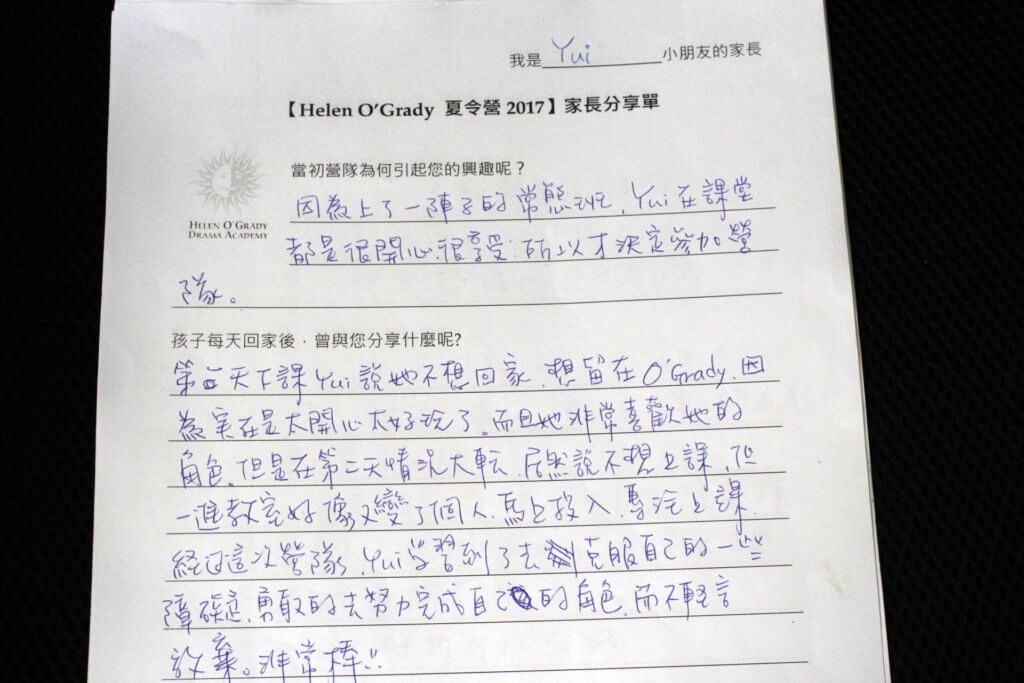 我是 Yui 小朋友的家長
【Helen O'Grady 夏令營 2017】家長分享單
當初營隊為何引起您的興趣呢？
因為上了一陣子的常態班，Yui 在課堂
HELEN O'GRADY
DRAMA ACADEMY
都是很開心、很享受；所以才決定參加營
隊。
孩子每天回家後，曾與您分享什麼呢?
第一天下課 Yui 說她不想回家，想留在 O'Grady，因
為実在是太開心太好玩了。而且她非常喜歡她的
角色，但是在第二天情況大転，居然說不想上課，但
一進教室好像又變了個人，馬上投入，專注上課，
経過這次營隊，Yui 学習到了去克服自己的一些
障礙，勇敢的去努力完成自己的角色，而不輕言
放棄。非常棒!!